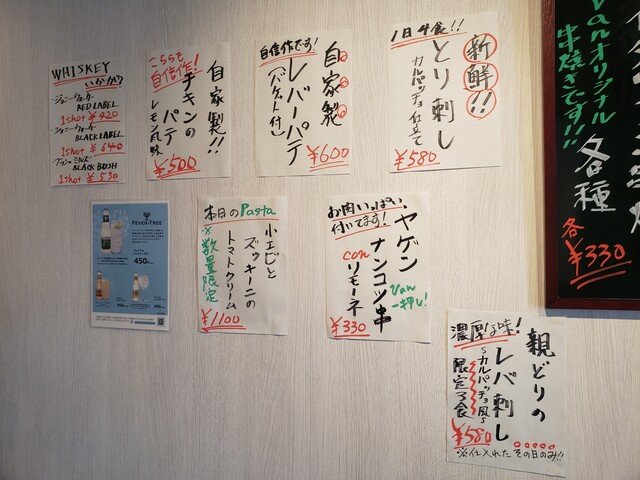 WHISKEY
いかがか
ジョニーウォーカー
RED LABEL
1shot ¥420
ジョニーウォーカー
BLACK LABEL
1shot ¥640
ブッシュミルズ
BLACK BUSH
1shot ¥530
こちらも
自信作!
自家製!!
チキンの
パテ
レモン風味
¥500
自信作です!
自家製
レバーパテ
(バケット付)
¥600
1日4食!!
新鮮!!
とり刺し
カルパッチョ仕立て
¥580
Vanオリジナル
串焼きです!!
各種
各
¥330
FEVER-TREE
450
本日のPasta
小エビと
ズッキーニの
トマトクリーム
※数量限定
¥1100
お肉いっぱい
付いてます!
ヤゲン
ナンコツ串
con リモーネ
Van
一押し!
¥330
濃厚な味!
親どりの
レバ刺し
〜カルパッチョ風〜
限定3食
¥580
※仕入れたその日のみ!!